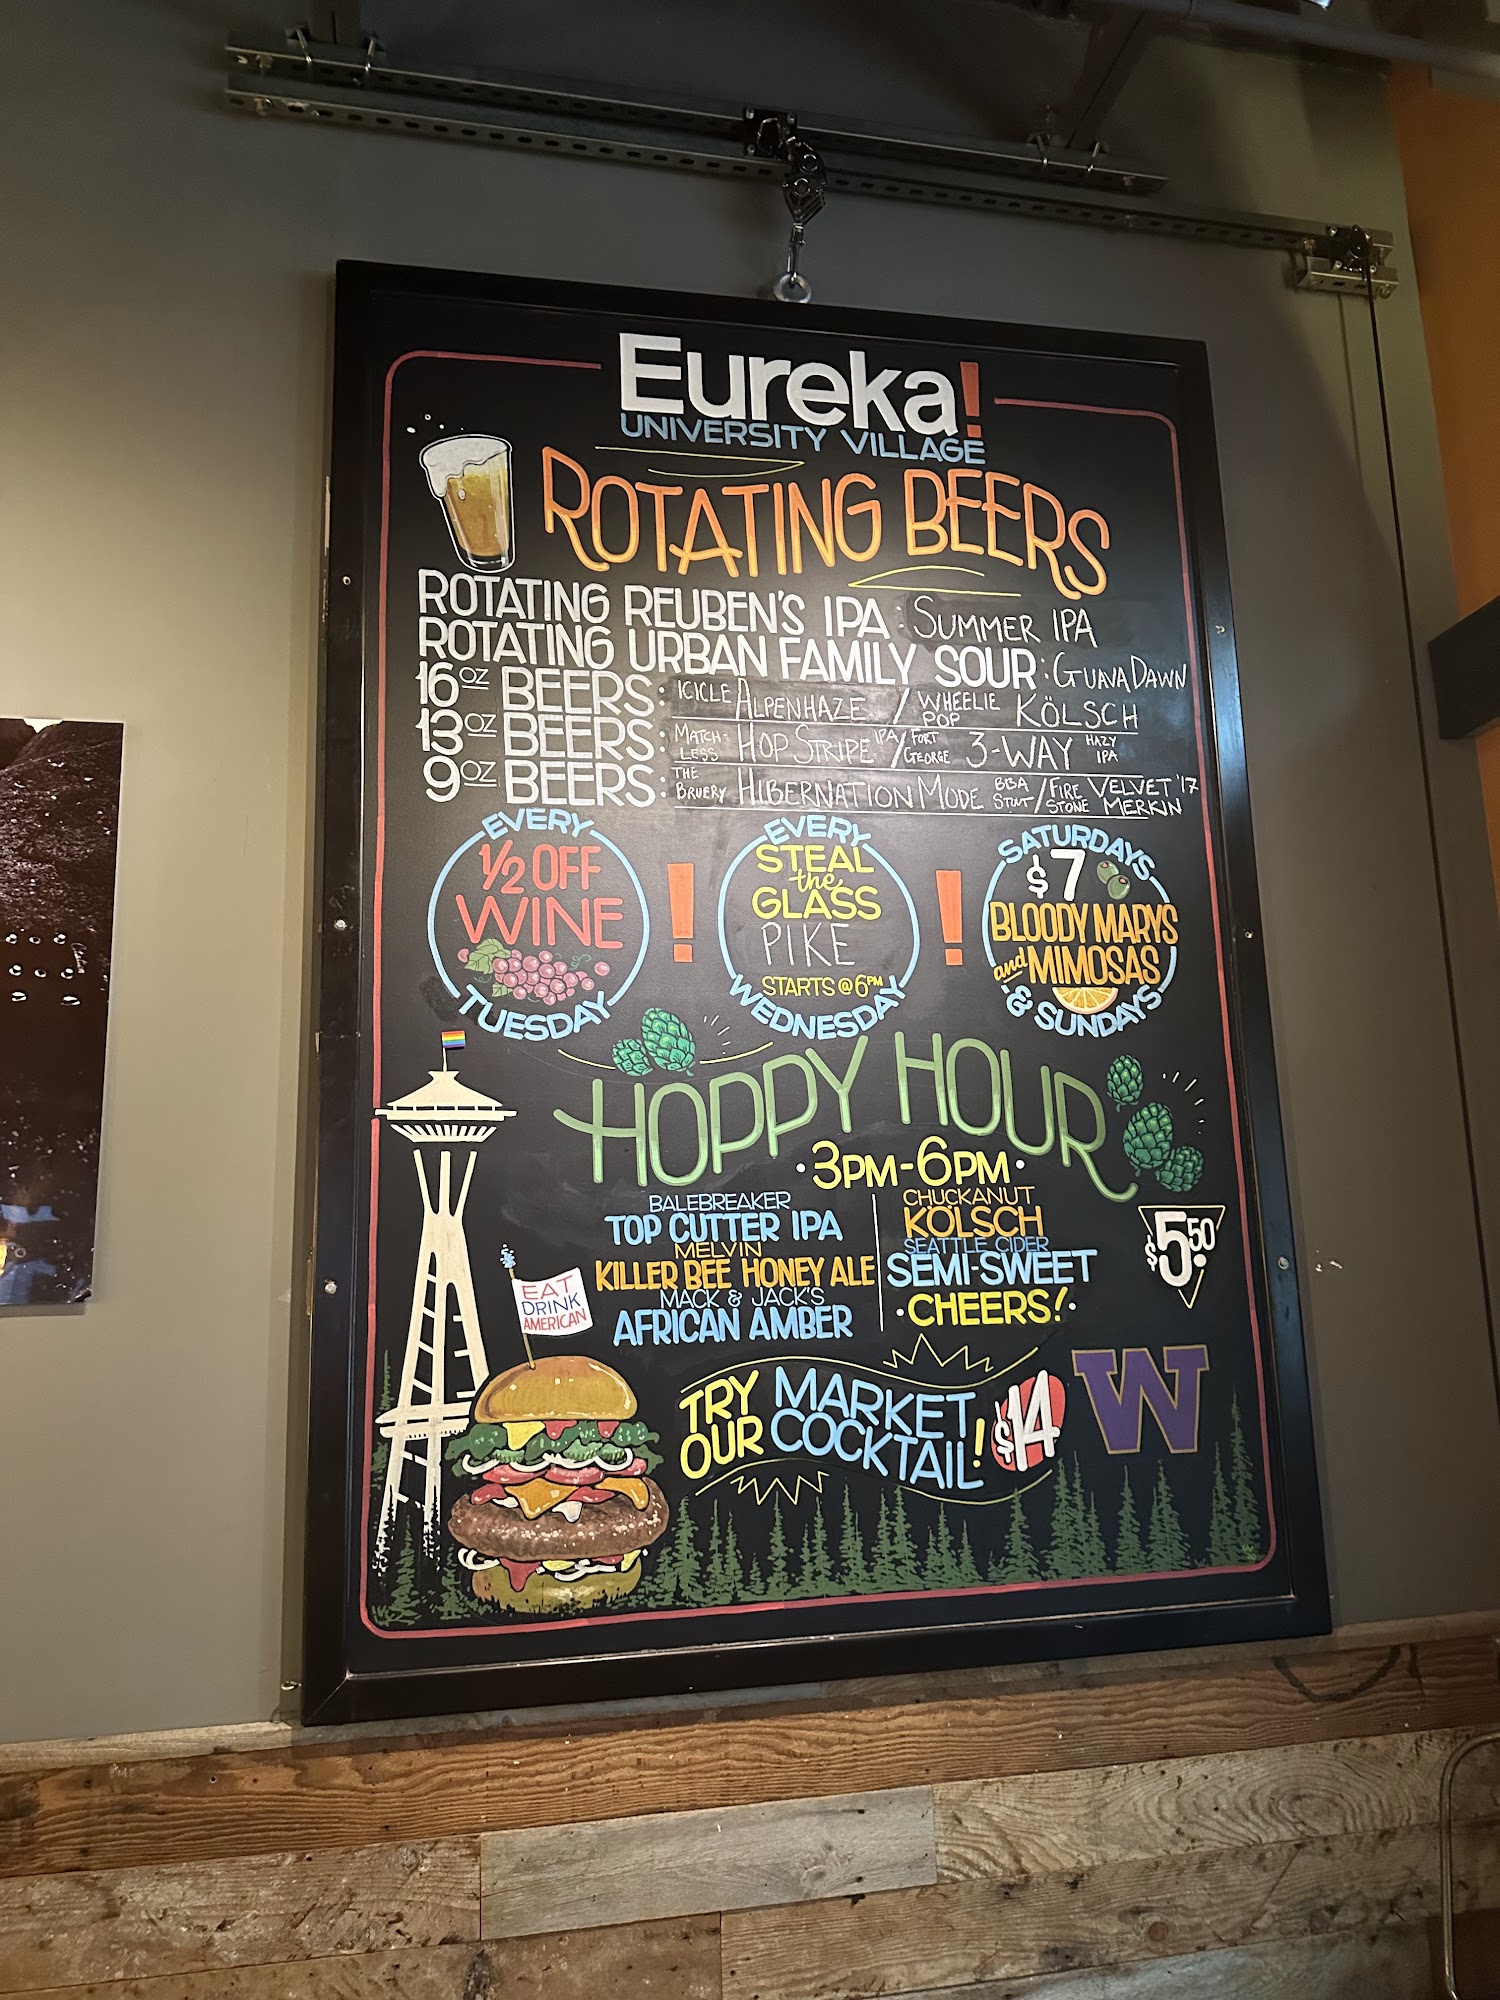 Eureka!
UNIVERSITY VILLAGE
ROTATING BEERS
ROTATING REUBEN'S IPA: SUMMER IPA
ROTATING URBAN FAMILY SOUR: GUAVA DAWN
16 OZ BEERS: ICICLE ALPENHAZE / WHEELIE POP KÖLSCH
13 OZ BEERS: MATCH-LESS HOP STRIPE IPA / FORT GEORGE 3-WAY HAZY IPA
9 OZ BEERS: THE BRUERY HIBERNATION MODE BBA STOUT / FIRE STONE VELVET MERKIN '17
EVERY
1/2 OFF
WINE
TUESDAY
!
EVERY
STEAL
the
GLASS
PIKE
STARTS @ 6PM
WEDNESDAY
!
SATURDAYS
$7
BLOODY MARYS
and MIMOSAS
& SUNDAYS
HOPPY HOUR
•3PM-6PM•
BALEBREAKER
TOP CUTTER IPA
MELVIN
KILLER BEE HONEY ALE
MACK & JACK'S
AFRICAN AMBER
CHUCKANUT
KÖLSCH
SEATTLE CIDER
SEMI-SWEET
•CHEERS!•
$5.50
EAT
DRINK
AMERICAN
TRY
OUR
MARKET
COCKTAIL!
$14
W